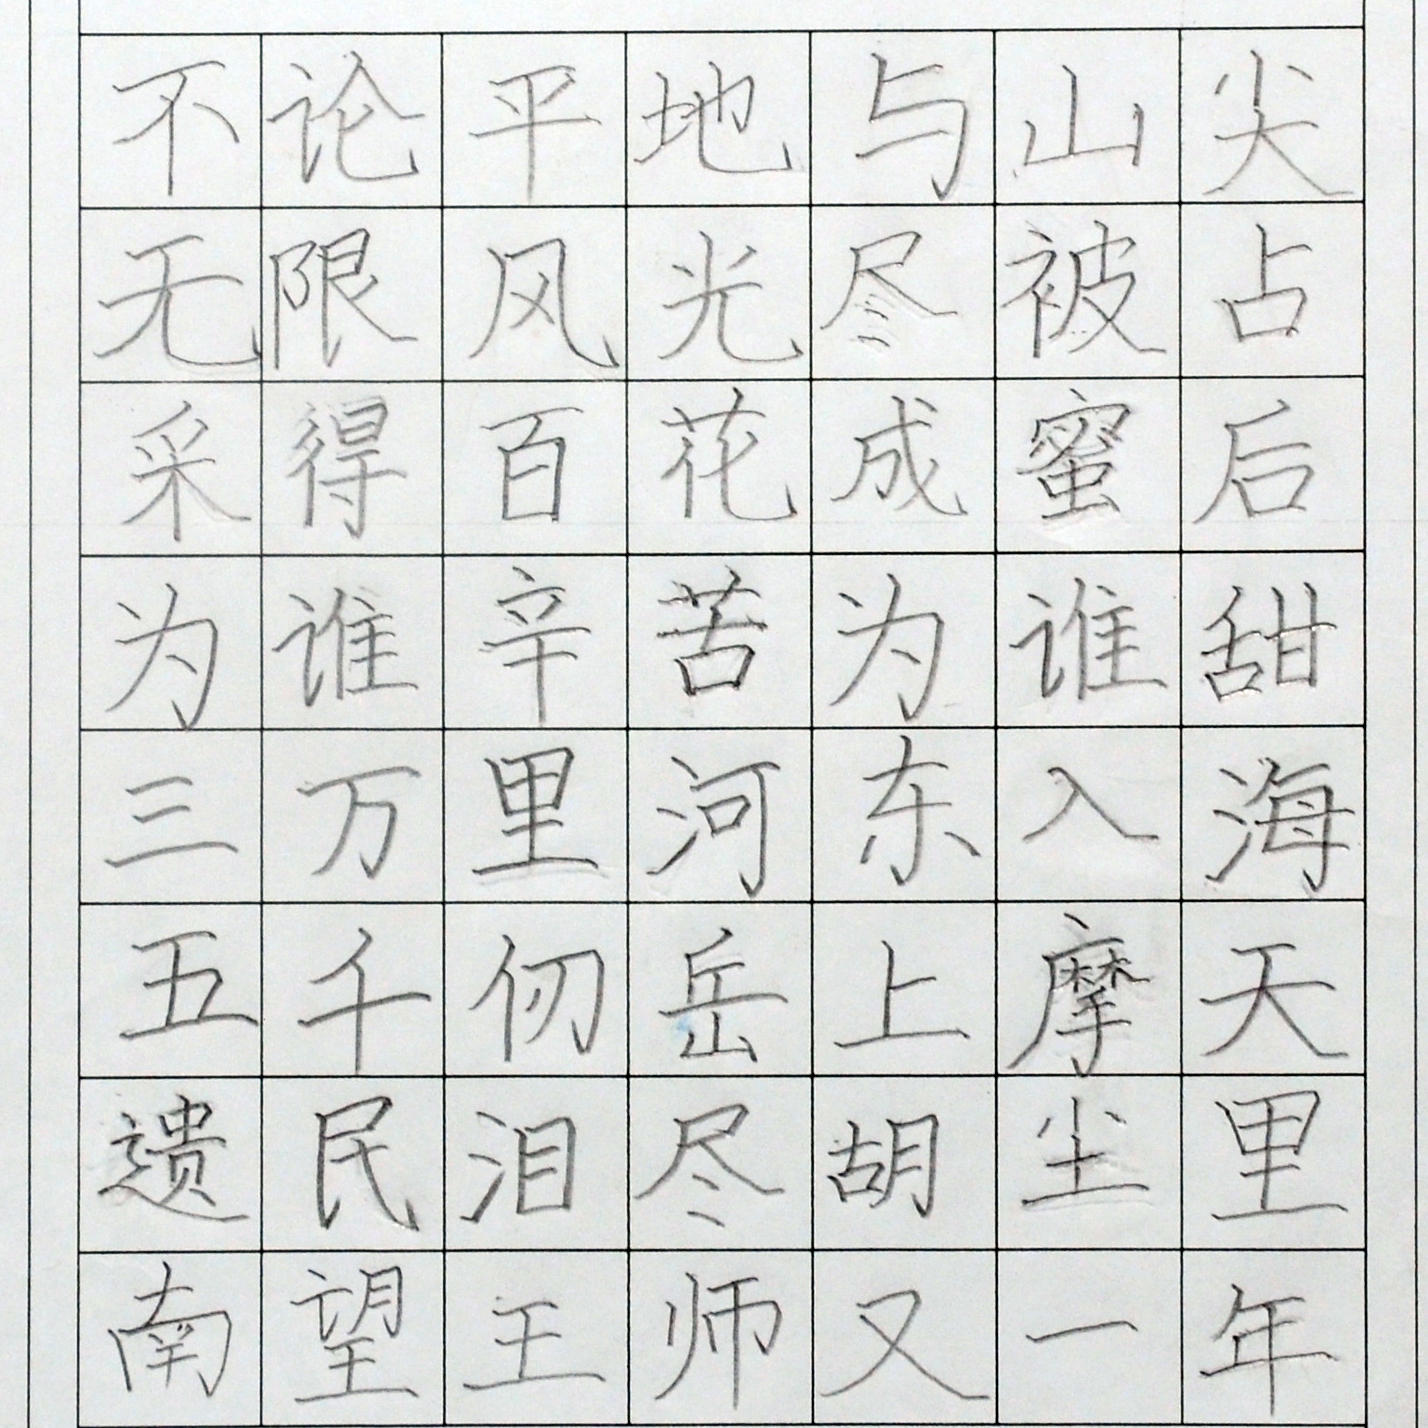 不论平地与山尖
无限风光尽被占
采得百花成蜜后
为谁辛苦为谁甜
三万里河东入海
五千仞岳上摩天
遗民泪尽胡尘里
南望王师又一年